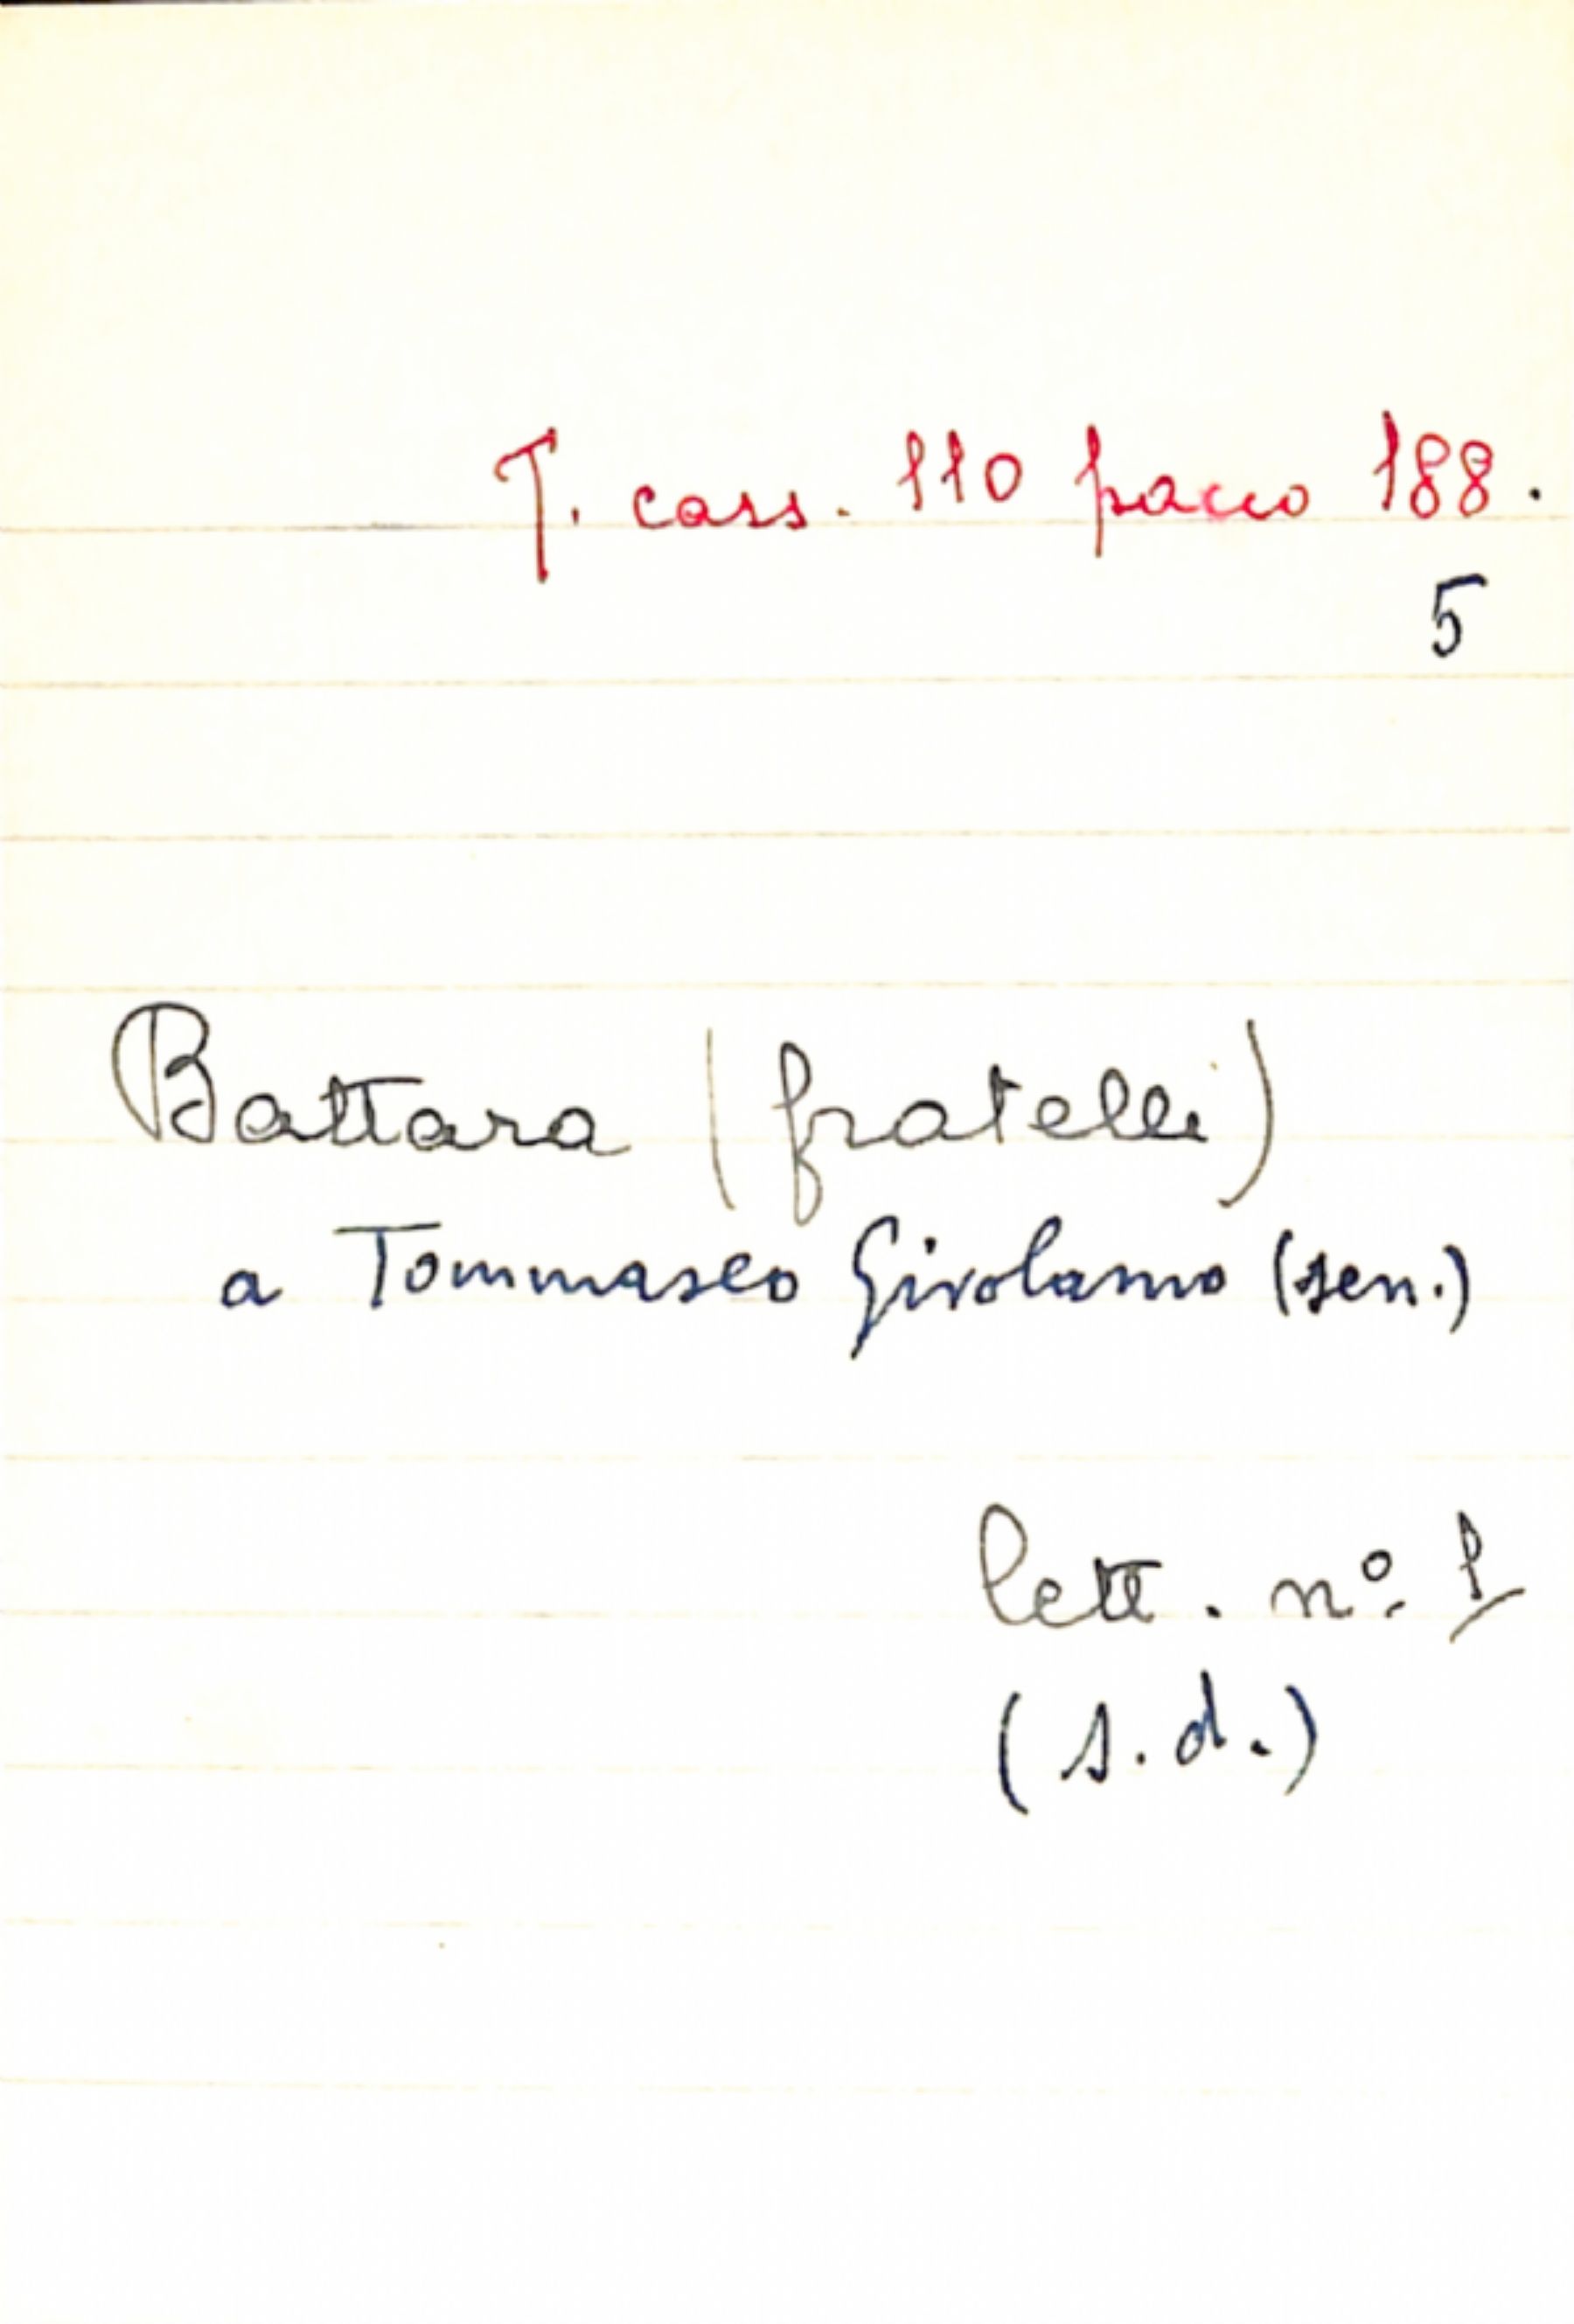 T. cass. 110 pacco 188.
5
Battara (fratelli)
a Tommaseo Girolamo (sen.)
lett. nº 1
(s.d.)